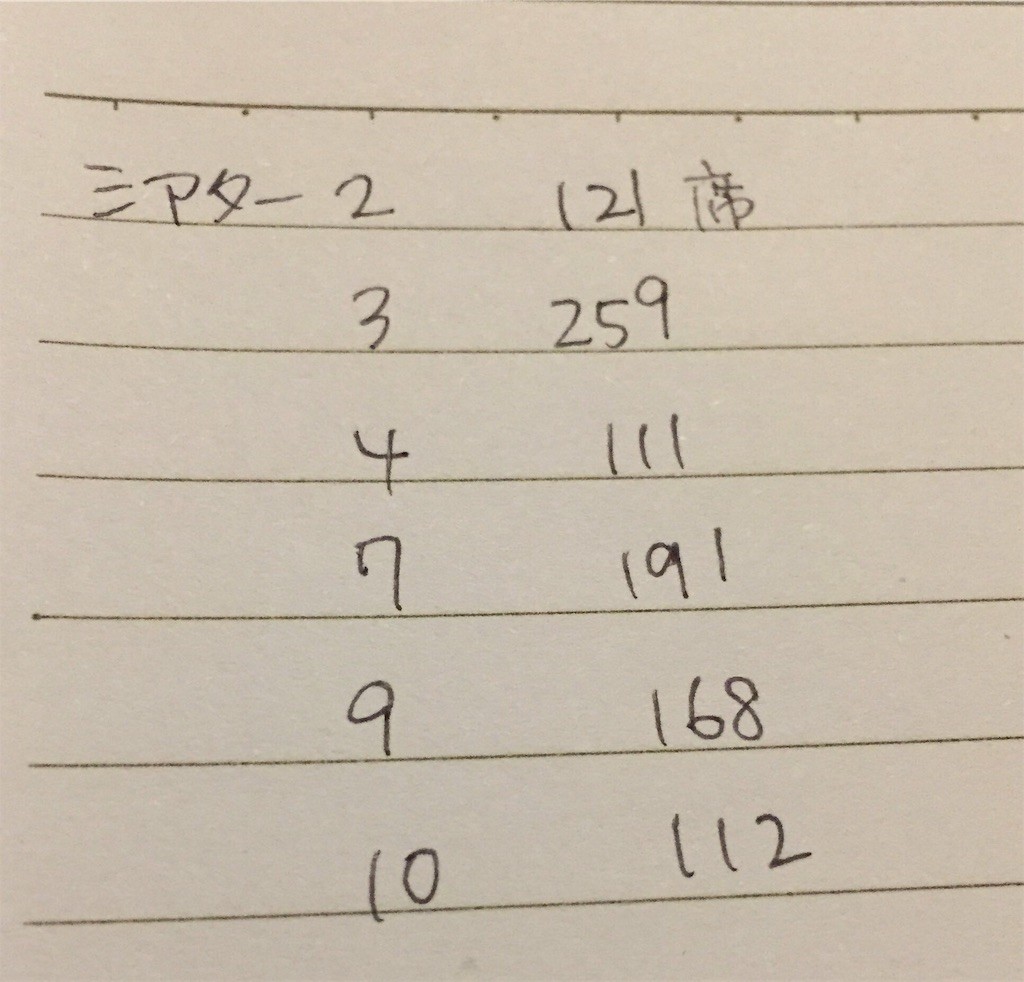 シアター 2 121 席
3 259
4 111
7 191
9 168
10 112